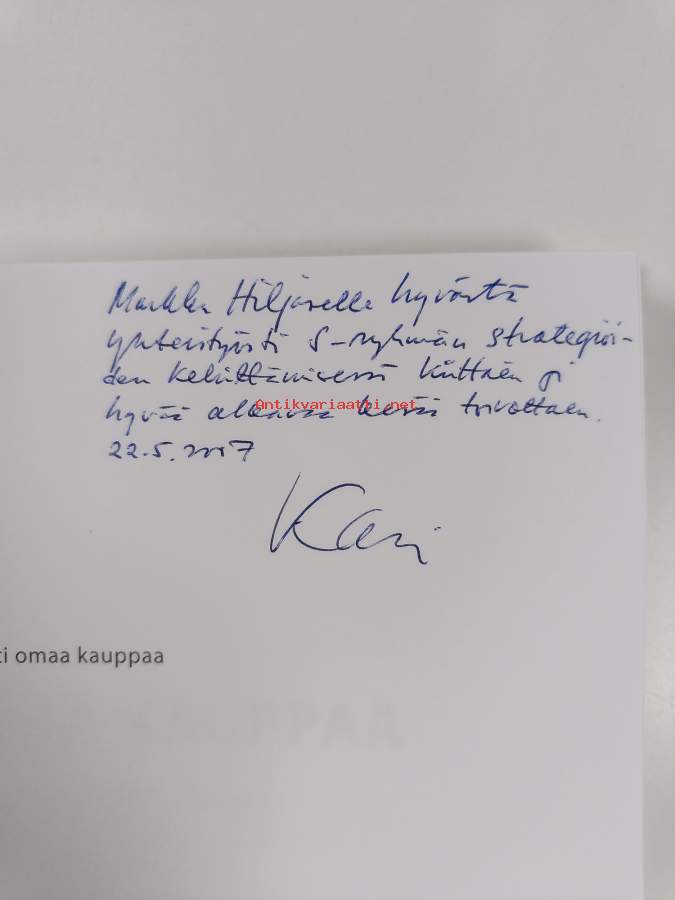 Markku Hiljaselle hyvästä
yhteistyöstä S-ryhmän strategioi-
den kehittämisessä kiittäen ja
hyvää alkavaa kesää toivottaen.
22.5.2007
Kari
Antikvariaatbi.net
ti omaa kauppaa
KAUPPAA